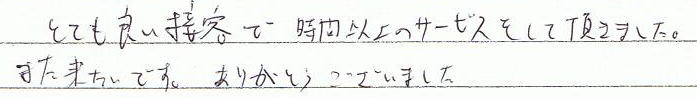 とても良い接客で 時間以上のサービスをして頂きました。
また来たいです。ありがとうございました